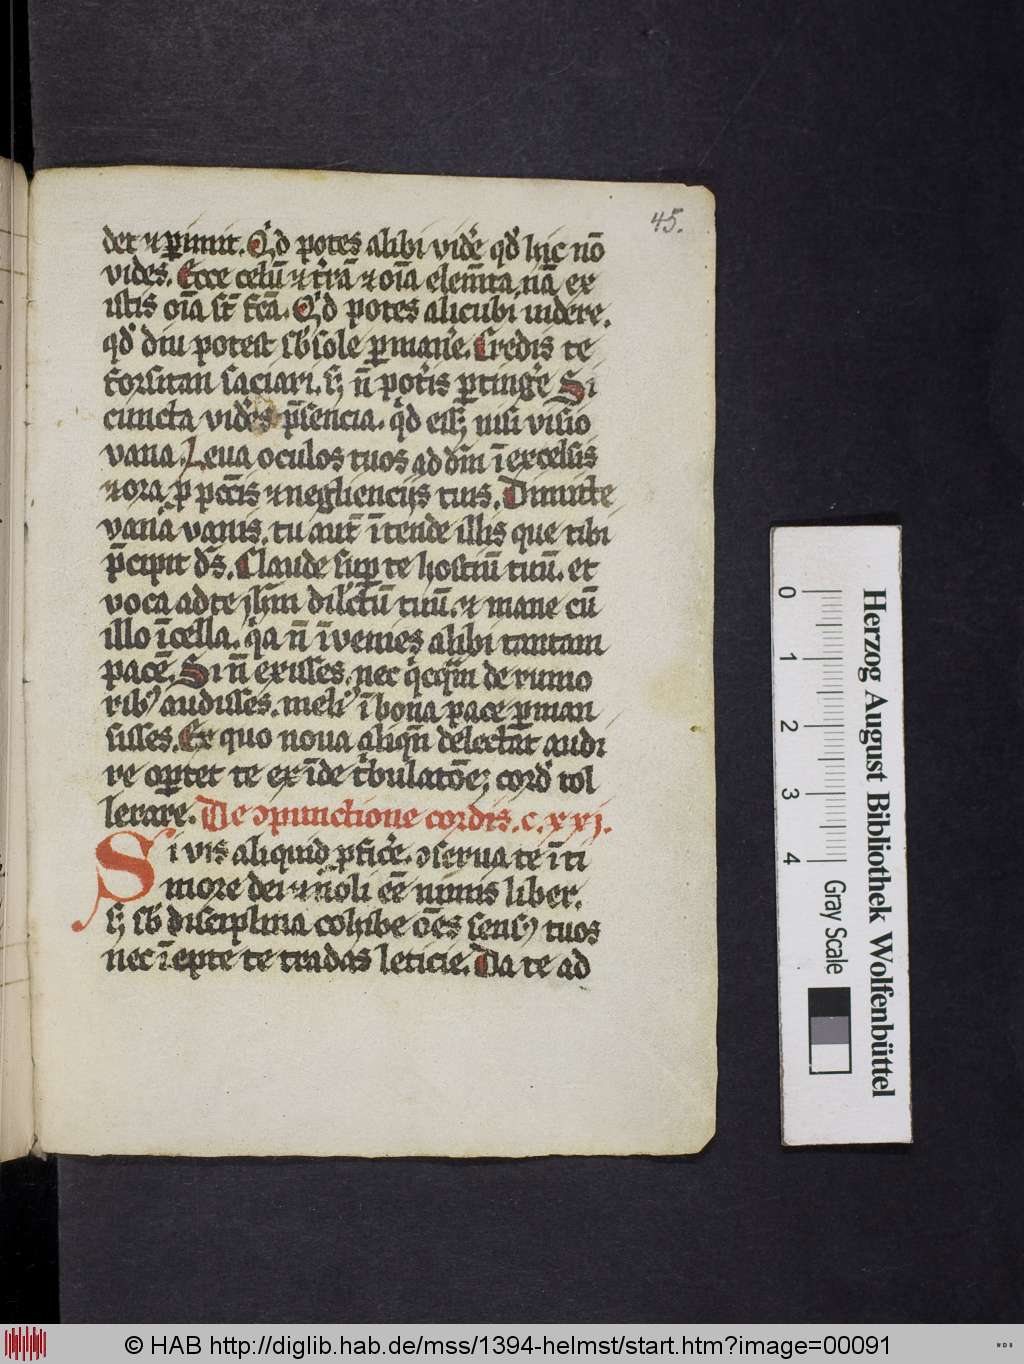 45.
det ⁊ ꝑimit. Qͥd potes alibi videͬ qd̓ hic nō
vides. Ecce celū ⁊ t͛rā ⁊ oīa elem̄ta, nā ex
istis oīa st̄ fc̄a. Qͥd potes alicubi uidere.
qd̓ diu potest sb̓ sole ꝑmaneͬ. Credis te
forsitan saciari. sꝫ n̄ pot̓is ꝑtingeͬ Si
cuncta videͬs p̄sencia. qͥd eēt nisi visio
vana. Leua oculos tuos ad dm̄ ī excelsis
⁊ ora ꝓ pcc̄is ⁊ negliencijs tuis. Dimitte
vana vanis. tu aut̄ ītende illis que tibi
p̄cipit ds̄. Claude suꝑ te hostiū tuū. et
voca ad te ihm̄ dilc̄tū tuū. ⁊ mane cū
illo ī cella. qͥa n̄ īvenies alibi tantam
pacē. Si n̄ exisses. nec qͥcqͣm de rumo
ribꝰ audisses. meliꝰ ī bona pace ꝑman
sisses. Ex quo noua aliqn̄ delectat audi
re oportet te ex īde t͛bulatōeꝫ cord̓ tol
lerare. De ꝯpunctione cordis. c. xxj.
Si vis aliquid ꝓficeͬ. ꝯserua te ī ti
more dei ⁊ noli eē nimis liber.
sꝫ sb̓ disciplina cohibe oēs sensꝰ tuos
nec īepte te tradas leticie. Da te ad
Herzog August Bibliothek Wolfenbüttel
0 1 2 3 4
Gray Scale
© HAB http://diglib.hab.de/mss/1394-helmst/start.htm?image=00091